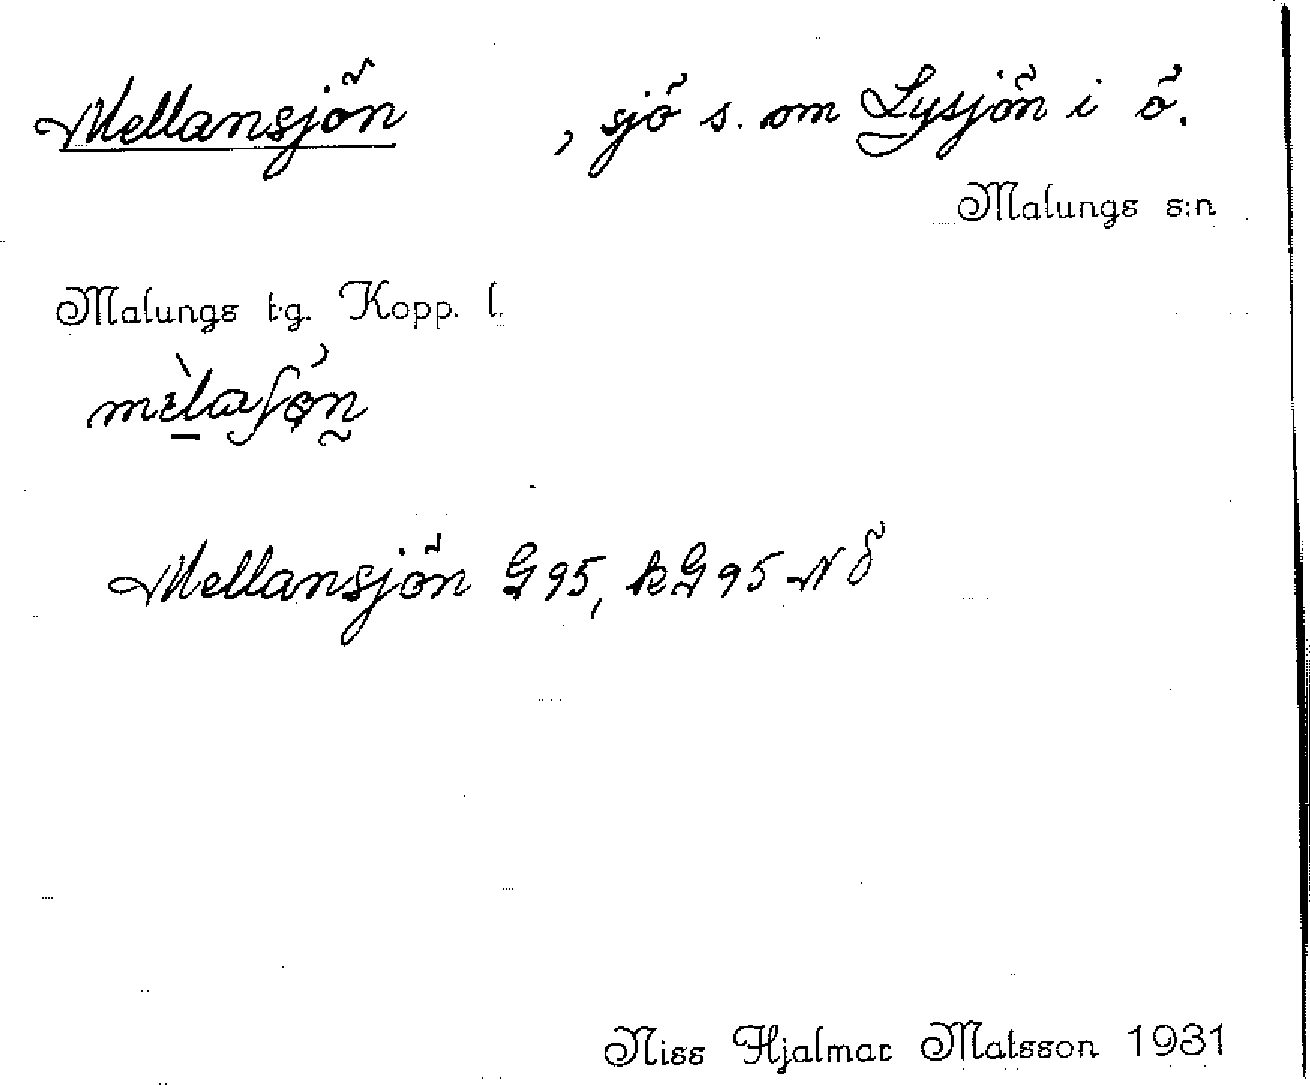 Mellansjön , sjö s. om Lysjön i ö.
Malungs s:n
Malungs tg. Kopp. l.
Mellansjön G 95, kG 95 NÖ
Niss Hjalmar Matsson 1931